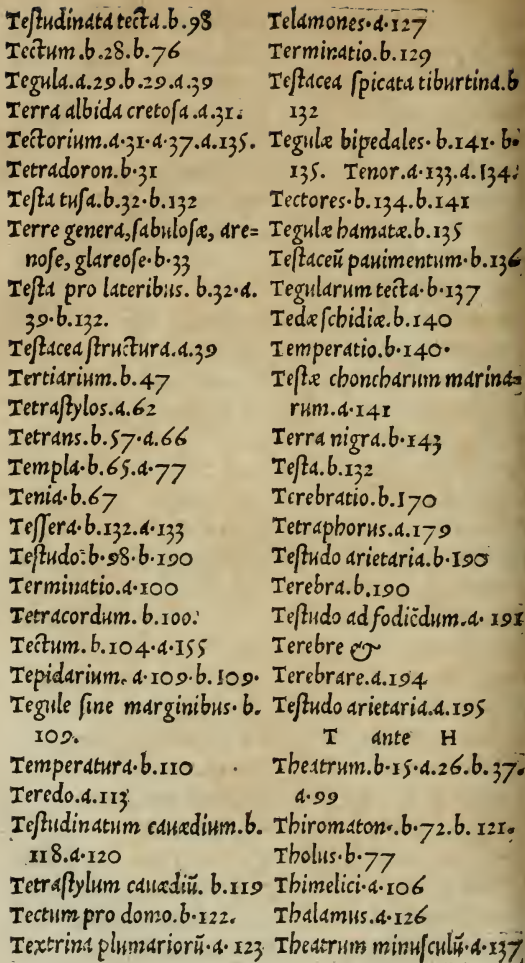 Teſtudinata tecta.b.98
Tectum.b.28.b.76
Tegula.a.29.b.29.a.39
Terra albida cretoſa.a.31.
Tectorium.a.31.a.37.a.135.
Tetradoron.b.31
Teſta tuſa.b.32.b.132
Terre genera,ſabuloſæ, are=
noſe, glareoſe.b.33
Teſta pro lateribus. b.32.a.
39.b.132.
Teſtacea ſtructura.a.39
Tertiarium.b.47
Tetraſtylos.a.62
Tetrans.b.57.a.66
Templa.b.65.a.77
Tenia.b.67
Teſſera.b.132.a.133
Teſtudo.b.98.b.190
Terminatio.a.100
Tetracordum. b.100.
Tectum. b.104.a.155
Tepidarium. a.109.b.109.
Tegule ſine marginibus. b.
109.
Temperatura.b.110
Teredo.a.113
Teſtudinatum cauædium.b.
118.a.120
Tetraſtylum cauædiū. b.119
Tectum pro domo.b.122.
Textrina plumariorū.a.123
Telamones.a.127
Terminatio.b.129
Teſtacea ſpicata tiburtina.b
132
Tegulæ bipedales. b.141. b.
135. Tenor.a.133.a.134.
Tectores.b.134.b.141
Tegulæ hamatæ.b.135
Teſtaceū pauimentum.b.136
Tegularum tecta.b.137
Tedæ ſchidiæ.b.140
Temperatio.b.140.
Teſtæ choncharum marina=
rum.a.141
Terra nigra.b.143
Teſta.b.132
Terebratio.b.170
Tetraphorus.a.179
Teſtudo arietaria.b.190
Terebra.b.190
Teſtudo ad fodiēdum.a.191
Terebre &
Terebrare.a.194
Teſtudo arietaria.a.195
T ante H
Theatrum.b.15.a.26.b.37.
a.99
Thiromaton.b.72.b.121.
Tholus.b.77
Thimelici.a.106
Thalamus.a.126
Theatrum minuſculū.a.137